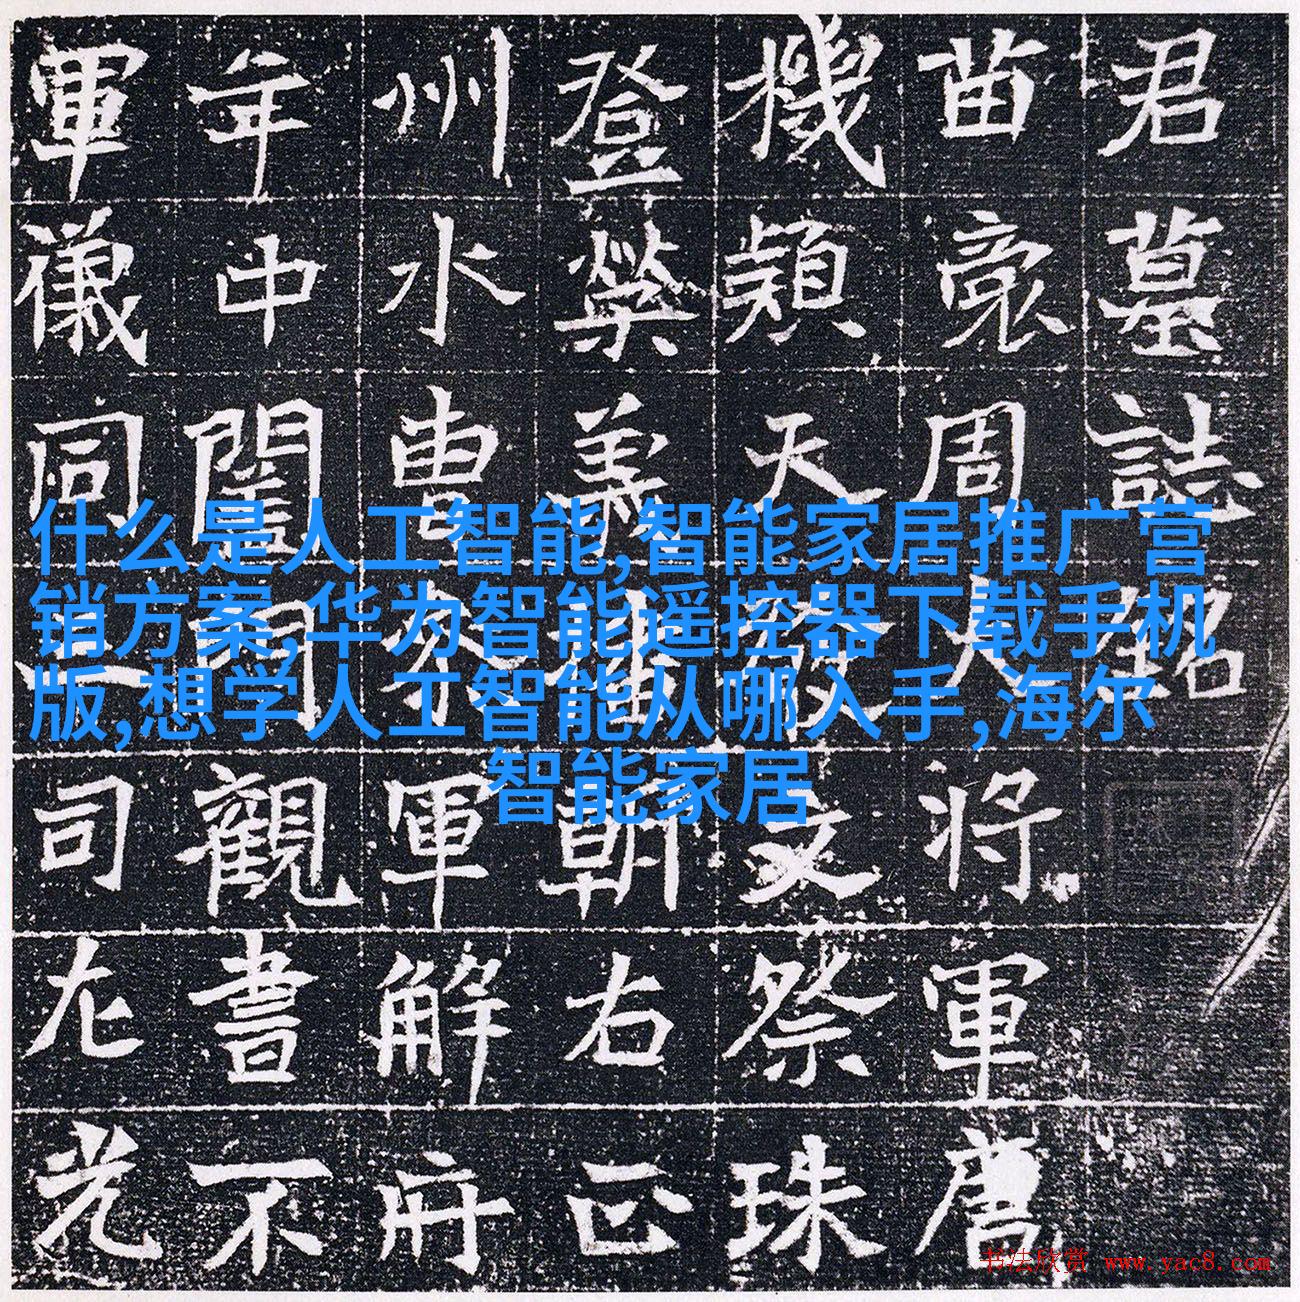 君墓誌銘
苗裔周大将軍唐
機穎天文祭珠
登榮朝右正
州水曹参軍解府
年中閨門觀書不
軍儀同三司左光
什么是人工智能,智能家居推广营
销方案,华为智能遥控器下载手机
版,想学人工智能从哪入手,海尔
智能家居
书法欣赏 www.yac8.com